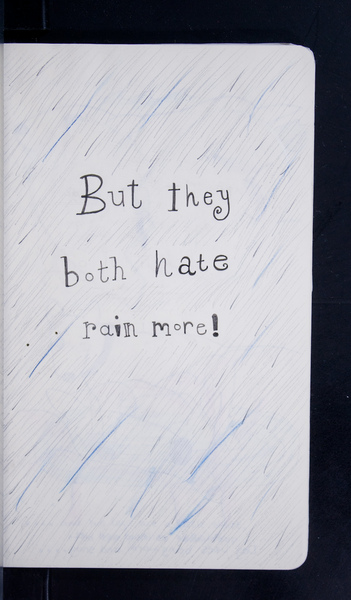 But they
both hate
rain more!